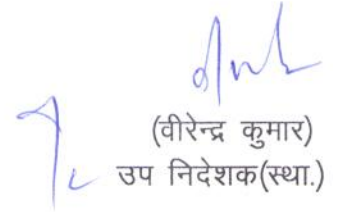 (वीरेन्द्र कुमार)
उप निदेशक(स्था.)